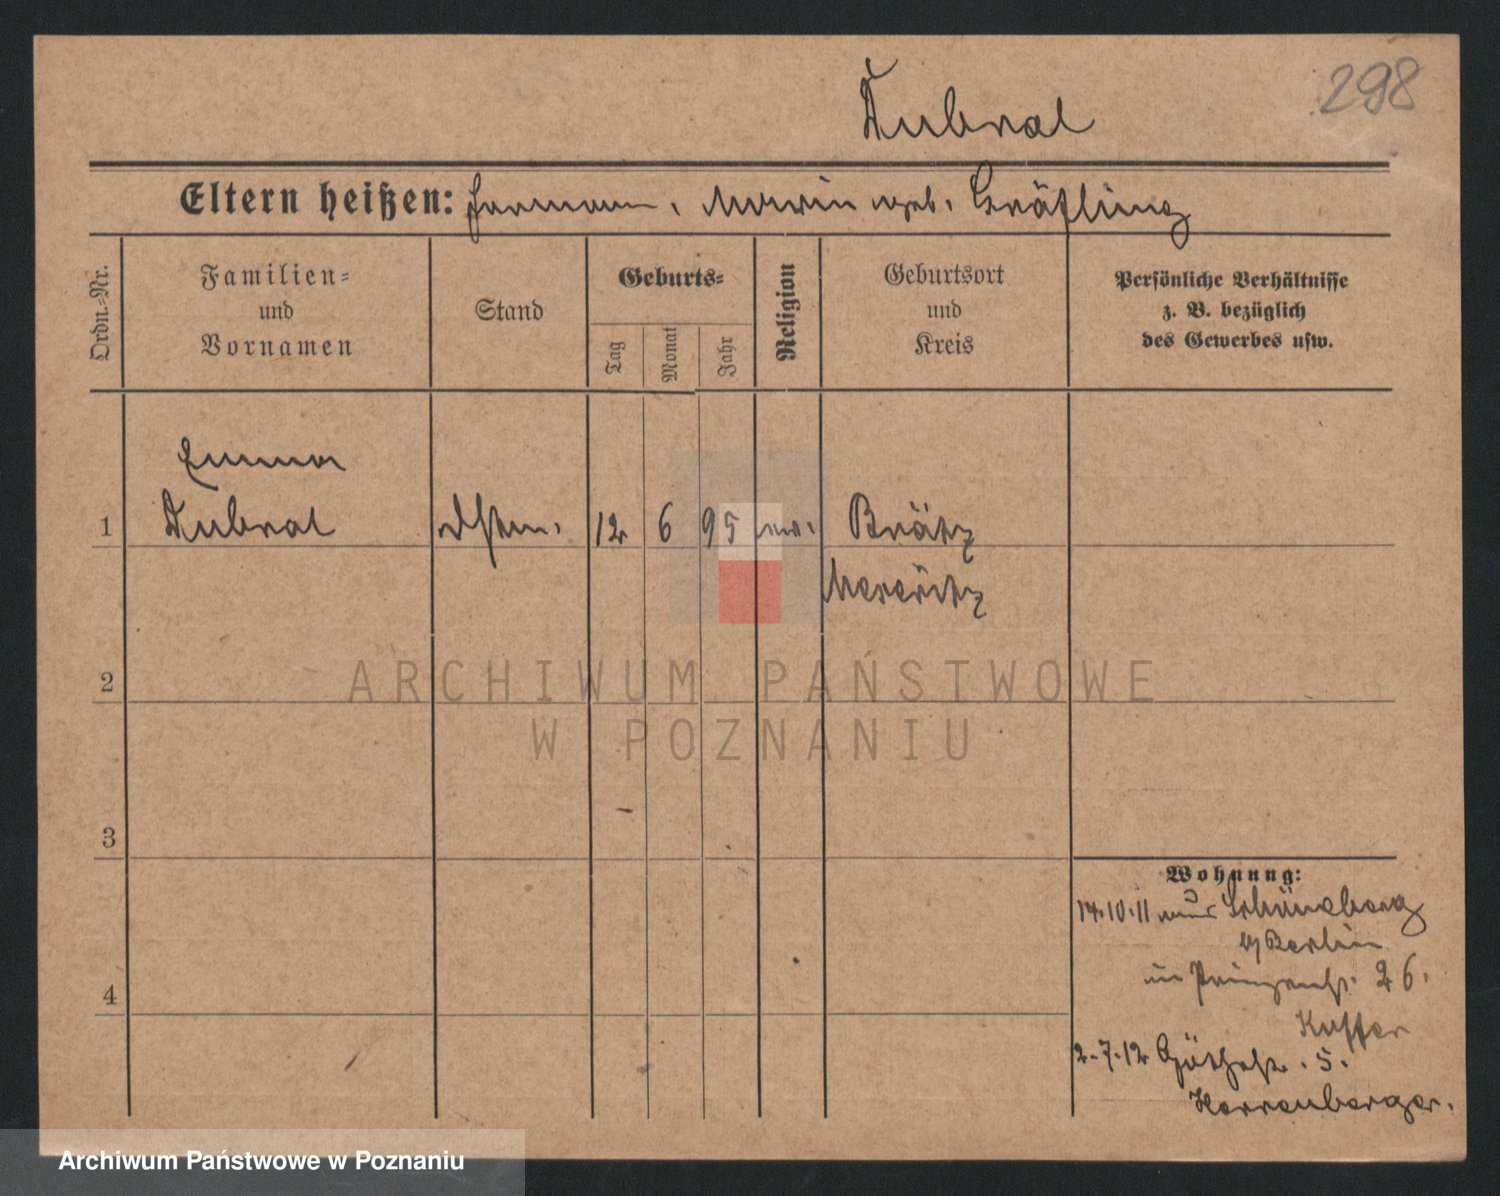 298
Dubral
Eltern heißen: Hermann, Marie geb. Gräfling
Ordn.-Nr.
Familien-
und
Vornamen
Stand
Geburts-
Tag
Monat
Jahr
Religion
Geburtsort
und
Kreis
Persönliche Verhältnisse
z. B. bezüglich
des Gewerbes usw.
Emma
1 Dubral 12 6 95 ev. Brätz
Meseritz
2
ARCHIWUM PAŃSTWOWE
W POZNANIU
3
Wohnung:
14.10.11 Schöneberg
b/ Berlin
26.
4
2.7.12 Göthestr. 5.
Herrenberger.
Archiwum Państwowe w Poznaniu